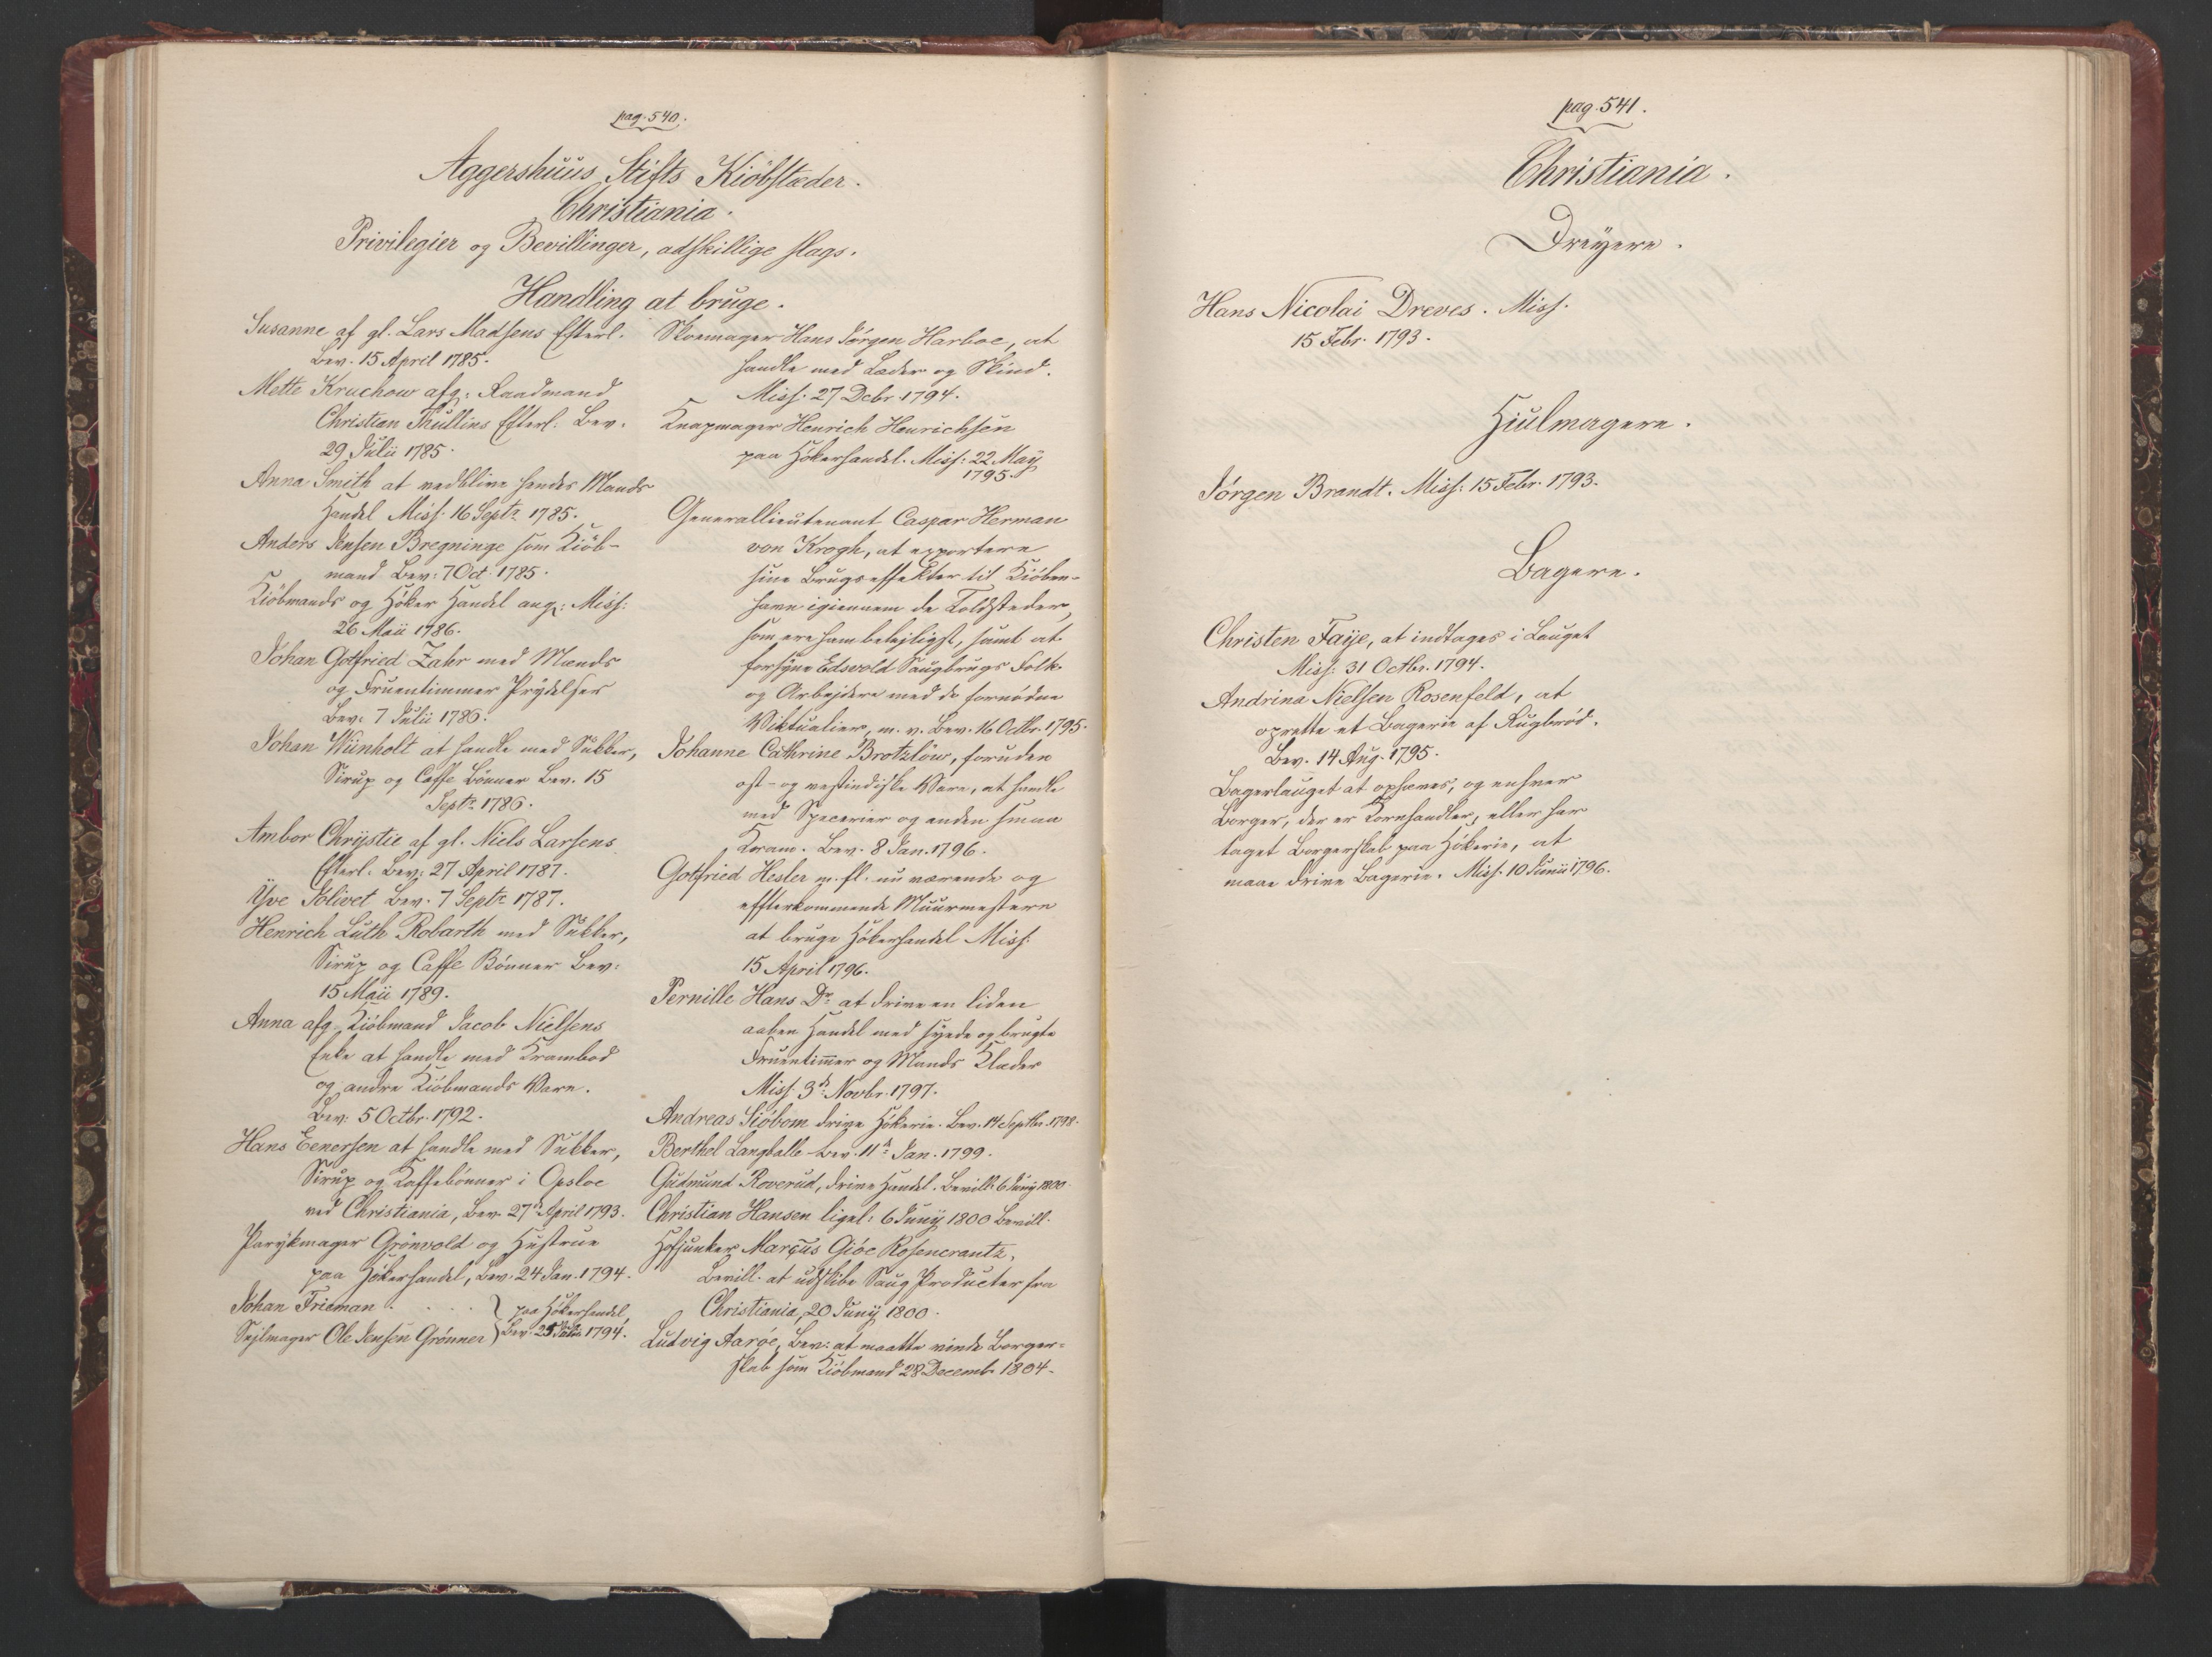 pag. 540.
Aggershuus Stifts Kiöbstæder.
Christiania.
Privilegier og Bevillinger, adskillige slags.
Handling at bruge.
Susanne af gl. Lars Madsens Efterl.
Bev. 15 April 1785.
Mette Kruchow afg: Raadmand
Christian Thullins Efterl: Bev.
29 Julii 1785.
Anna Smith at vedblive hendes Mands
Handel Miss: 16 Septr 1785.
Anders Jensen Bregninge som Kiöb-
mand Bev: 7 Oct 1785.
Kiöbmands og Höker Handel ang: Miss:
26 Maii 1786.
Johan Gotfried Zahr med Mands
og Fruentimmer Prydelser
Bev: 7 Julii 1786.
Johan Wünholt at handle med Sukker,
Sirup og Caffe Bönner Bev. 15
Septr 1786.
Ambor Chrystie af gl. Niels Larsens
Efterl: Bev: 27 April 1787.
Yve Jolivet Bev. 7 Septr 1787.
Henrich Luth Robarth med Sukker,
Sirup og Caffe Bönner Bev:
15 Maii 1789.
Anna afg Kiöbmand Jacob Nielsens
Enke at handle med Krambod
og andre Kiöbmands Vare.
Bev: 5 Octbr. 1792.
Hans Eenersen at handle med Sukker,
Sirup og Kaffebönner i Opsloe
ved Christiania, Bev. 27d April 1793.
Parykmager Grönvold og Hustrue
paa Hökerhandel, Bev. 24 Jan. 1794.
Johan Frieman . . . . } paa Hökerhandel
Sejlmager Ole Jensen Grönner } Bev. 1794.
Skoemager Hans Jörgen Harboe, at
handle med Læder og Skind.
Miss: 27 Debr. 1794.
Knapmager Henrich Henrichsen
paa Hökerhandel. Miss: 22 May
1795.
Generallieutenant Caspar Herman
von Krogh, at exportere
sine Brugseffekter til Kiöben-
havn igiennem de Toldsteder,
som ere ham belejligst, samt at
forsyne Edsvold Saugbrugs Folk
og Arbejdere med de fornödne
Viktualier, m. v. Bev. 16 Octbr. 1795.
Johanne Cathrine Brotzlöw, foruden
ost- og vestindiske Vare, at handle
med Specerier og anden smaa
Kram. Bev. 8 Jan. 1796.
Gotfried Hesler m. fl. nu værende og
effterkommende Muurmestere
at bruge Hökerhandel Miss:
15 April 1796.
Pernille Hans Dr at drive en liden
aaben Handel med syede og brugte
Fruentimer og Mands Klæder
Miss: 3de Novbr. 1797.
Andreas Siöbom drive Hökerie. Bev. 14 Septbr. 1798.
Berthel Langballe Bev. 11te Jan. 1799.
Gudmund Roverud, drive Handel. Bevill: 6 Juny 1800.
Christian Hansen ligel: 6 Juny 1800 Bevill.
Hofjunker Marcus Giöe Rosencrantz,
Bevill. at udskibe Saug Producter fra
Christiania, 20 Juny 1800.
Ludvig Aaröe, Bev: at maatte vinde Borger-
skab som Kiöbmand 28 Decemb. 1804.
pag. 541.
Christiania.
Dreyere.
Hans Nicolai Dreves. Miss.
15 Febr. 1793.
Hiulmagere.
Jörgen Brandt. Miss: 15 Febr. 1793.
Bagere.
Christen Faye, at indtages i Lauget
Miss: 31 Octbr. 1794.
Andrina Nielsen Rosenfeld, at
oprette et Bagerie af Rugbröd.
Bev. 14 Aug. 1795.
Bagerlauget at ophæves, og enhver
Borger, der er Kornhandler, eller har
taget Borgerskab paa Hökerie, at
maae drive Bagerie. Miss. 10 Junii 1796.